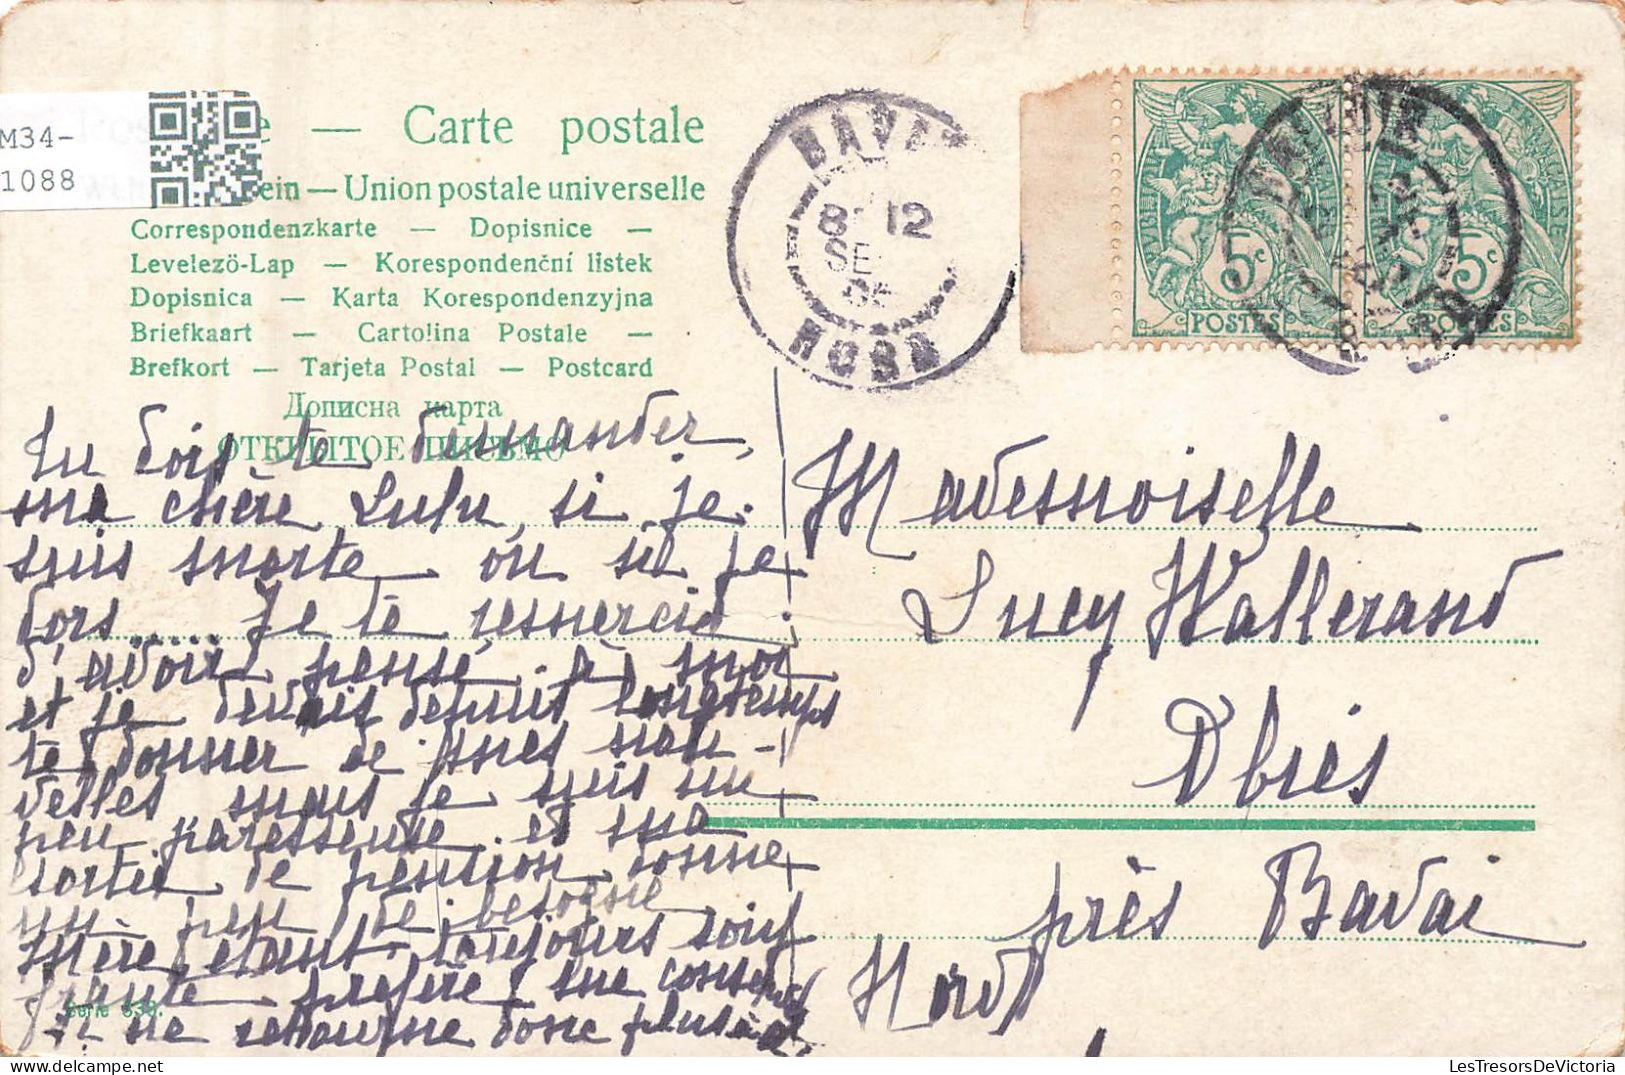 M34-
1088
e — Carte postale
ein — Union postale universelle
Correspondenzkarte — Dopisnice —
Levelezö-Lap — Korespondenční listek
Dopisnica — Karta Korespondenzyjna
Briefkaart — Cartolina Postale —
Brefkort — Tarjeta Postal — Postcard
Дописна карта
ОТКРЫТОЕ ПИСЬМО
BAVAY
8 12
SE
05
NORD
5c
POSTES
5c
POSTES
Tu dois te demander,
ma chère Lulu, si je
suis morte ou si je
dors...... Je te remercie
d'avoir pensé à moi
et je devais depuis longtemps
te donner de mes nou-
velles mais je suis un
peu paresseuse et ma
sortie de pension donne
un peu de besogne
Mère étant toujours souf
frante préfère me conserver
Je ne retourne donc plus à
Mademoiselle
Lucy Wallerand
Obies
près Bavai
Nord
Serie 539.
LesTresorsDeVictoria